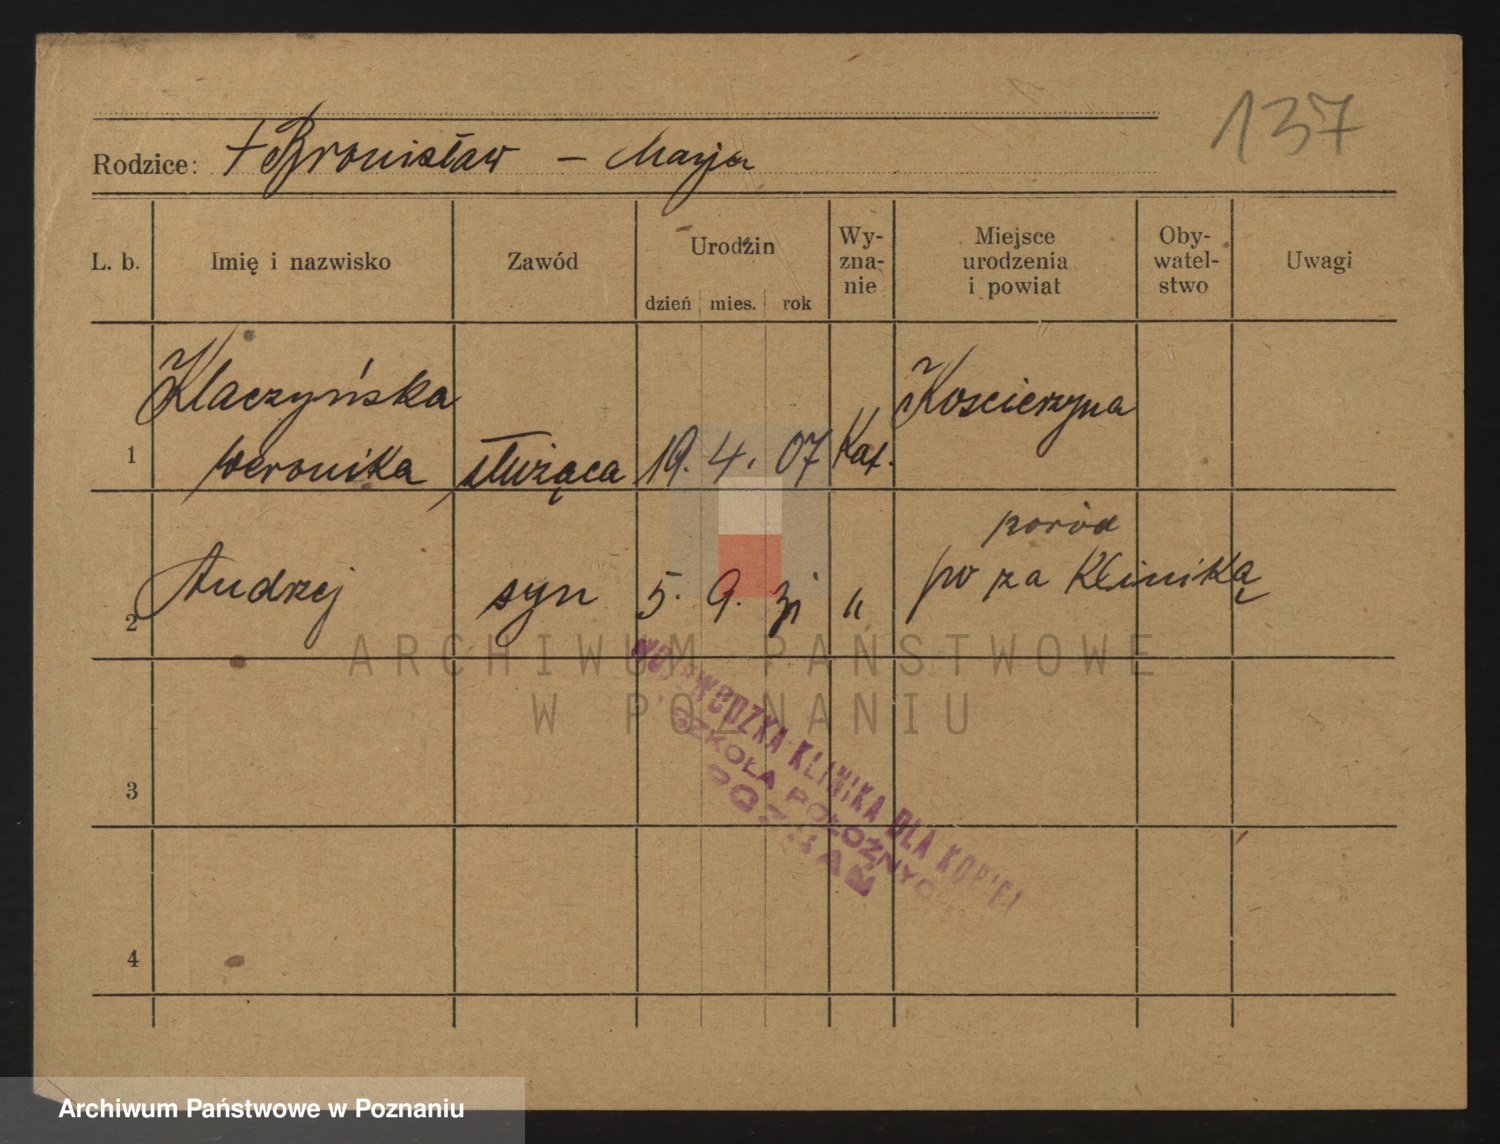 137
Rodzice: + Bronisław – Marja
L. b. Imię i nazwisko Zawód Urodzin Wy-zna-nie Miejsce urodzenia i powiat Oby-watel-stwo Uwagi
dzień mies. rok
Klaczyńska Kościerzyna
1 Weronika służąca 19. 4. 07 Kat.
poród
2 Andrzej syn 5. 9. 31 " po za Kliniką
3
4
WOJEWÓDZKA KLINIKA DLA KOBIET
SZKOŁA POŁOŻNYCH
POZNAŃ
ARCHIWUM PAŃSTWOWE
W POZNANIU
Archiwum Państwowe w Poznaniu